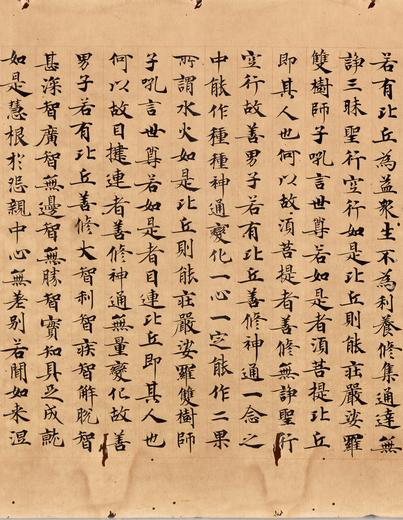 若有比丘為益衆生不為利養修集通達無
諍三昧聖行空行如是比丘則能莊嚴娑羅
雙樹師子吼言世尊若如是者湏菩提比丘
即其人也何以故湏菩提者善修無諍聖行
空行故善男子若有比丘善修神通一念之
中能作種種神通變化一心一定能作二果
所謂水火如是比丘則能莊嚴娑羅雙樹師
子吼言世尊若如是者目連比丘即其人也
何以故目揵連者善修神通無量變化故善
男子若有比丘善修大智利智疾智解脫智
甚深智廣智無邊智無勝智實智具足成就
如是慧根於怨親中心無差別若聞如来涅